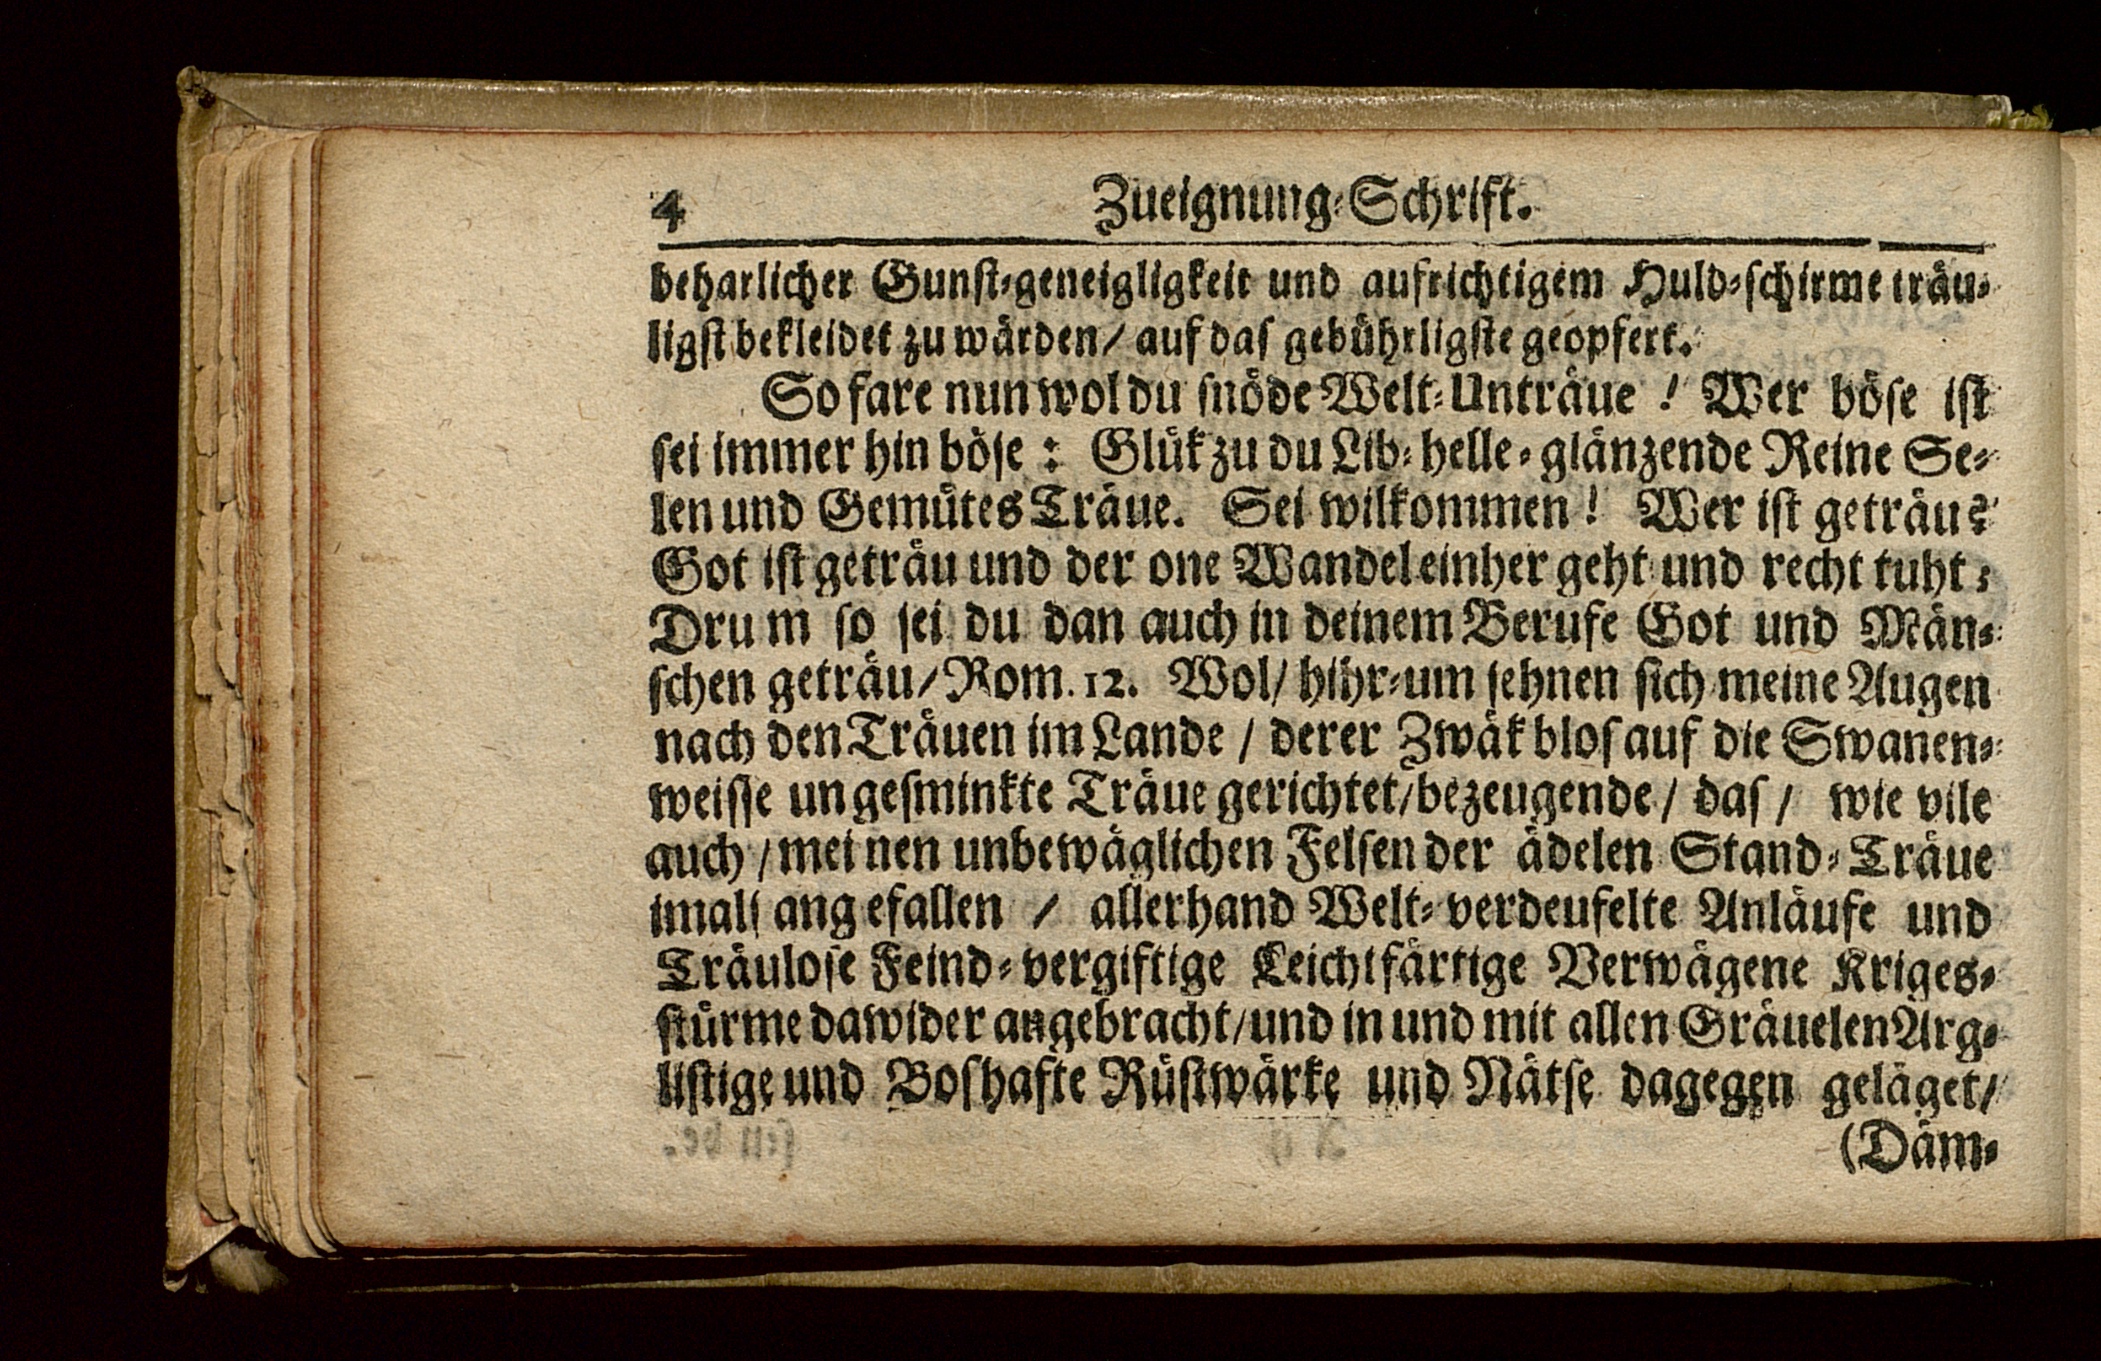 4 Zueignung-Schrift.
beharlicher Gunst-geneigligkeit und aufrichtigem Huld-schirme träu-
ligst bekleidet zu wärden/ auf das gebührligste geopfert.
So fare nun wol du snöde Welt-Unträue ! Wer böse ist
sei immer hin böse : Glük zu du Lib-helle-glänzende Reine Se-
len und Gemütes Träue. Sei wilkommen ! Wer ist geträu?
Got ist geträu und der one Wandel einher geht und recht tuht;
Drum so sei du dan auch in deinem Berufe Got und Män-
schen geträu/ Rom. 12. Wol/ hihr-um sehnen sich meine Augen
nach den Träuen im Lande / derer Zwäk blos auf die Swanen-
weisse ungesminkte Träue gerichtet/ bezeugende / das / wie vile
auch / meinen unbewäglichen Felsen der ädelen Stand-Träue
imals angefallen / allerhand Welt-verdeufelte Anläufe und
Träulose Feind-vergiftige Leichtfärtige Verwägene Kriges-
stürme dawider angebracht/ und in und mit allen Gräuelen Arg-
listige und Boshafte Rüstwärke und Nätse dagegen geläget/
(Däm-